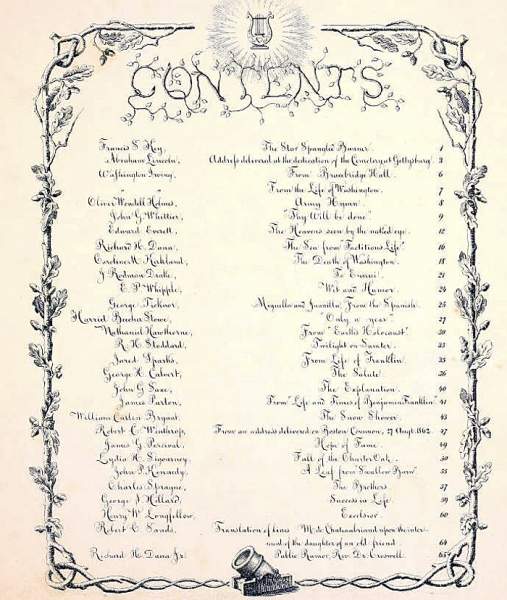 CONTENTS
Francis S. Key, The Star Spangled Banner. 1
Abraham Lincoln, Address delivered at the dedication of the Cemetery at Gettysburg. 3
Washington Irving, From Bracebridge Hall. 6
" " From the Life of Washington. 7
Oliver Wendell Holmes, Army Hymn. 8
John G. Whittier, "Thy Will be done". 9
Edward Everett, The Heavens seen by the naked eye. 12
Richard H. Dana, The Sea from "Factitious Life". 16
Caroline M. Kirkland, The Death of Washington. 18
J. Rodman Drake, To Ennui. 21
E. P. Whipple, Wit and Humor. 24
George Ticknor, Minguillo and Juanilla, From the Spanish. 25
Harriet Beecher Stowe, "Only a year" 27
Nathaniel Hawthorne, From "Earth's Holocaust". 30
R. H. Stoddard, Twilight on Sumter. 33
Jared Sparks, From Life of Franklin. 35
George H. Calvert, The Salute. 36
John G. Saxe, The Explanation. 40
James Parton, From "Life and Times of Benjamin Franklin". 41
William Cullen Bryant, The Snow Shower. 43
Robert C. Winthrop, From an address delivered on Boston Common, 27 Augt. 1862. 47
James G. Percival, Hope of Fame. 49
Lydia H. Sigourney, Fall of the Charter Oak. 50
John P. Kennedy, A Leaf from "Swallow Barn". 55
Charles Sprague, The Brothers. 57
George S. Hillard, Success in Life. 59
Henry W. Longfellow, Excelsior. 60
Robert C. Sands, Translation of lines M. de Chateaubriand upon the inter-
ment of the daughter of an old friend. 64
Richard H. Dana Jr. Public Rumor, Rev. Dr. Croswell. 65